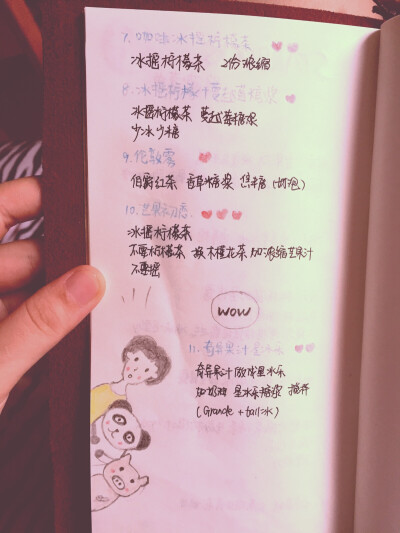 7. 咖啡冰摇柠檬茶
冰摇柠檬茶 2份浓缩
8. 冰摇柠檬汁蔓越莓糖浆
冰摇柠檬茶 蔓越莓糖浆
少冰少糖
9. 伦敦雾
伯爵红茶 香草糖浆 焦糖
10. 芒果初恋
冰摇柠檬茶
不要柠檬茶 换木槿花茶 加浓缩芒果汁
不要摇
WOW
11. 奇异果汁
奇异果汁做成星冰乐
加奶油 星冰乐糖浆 搅拌
(Grande + tall冰)